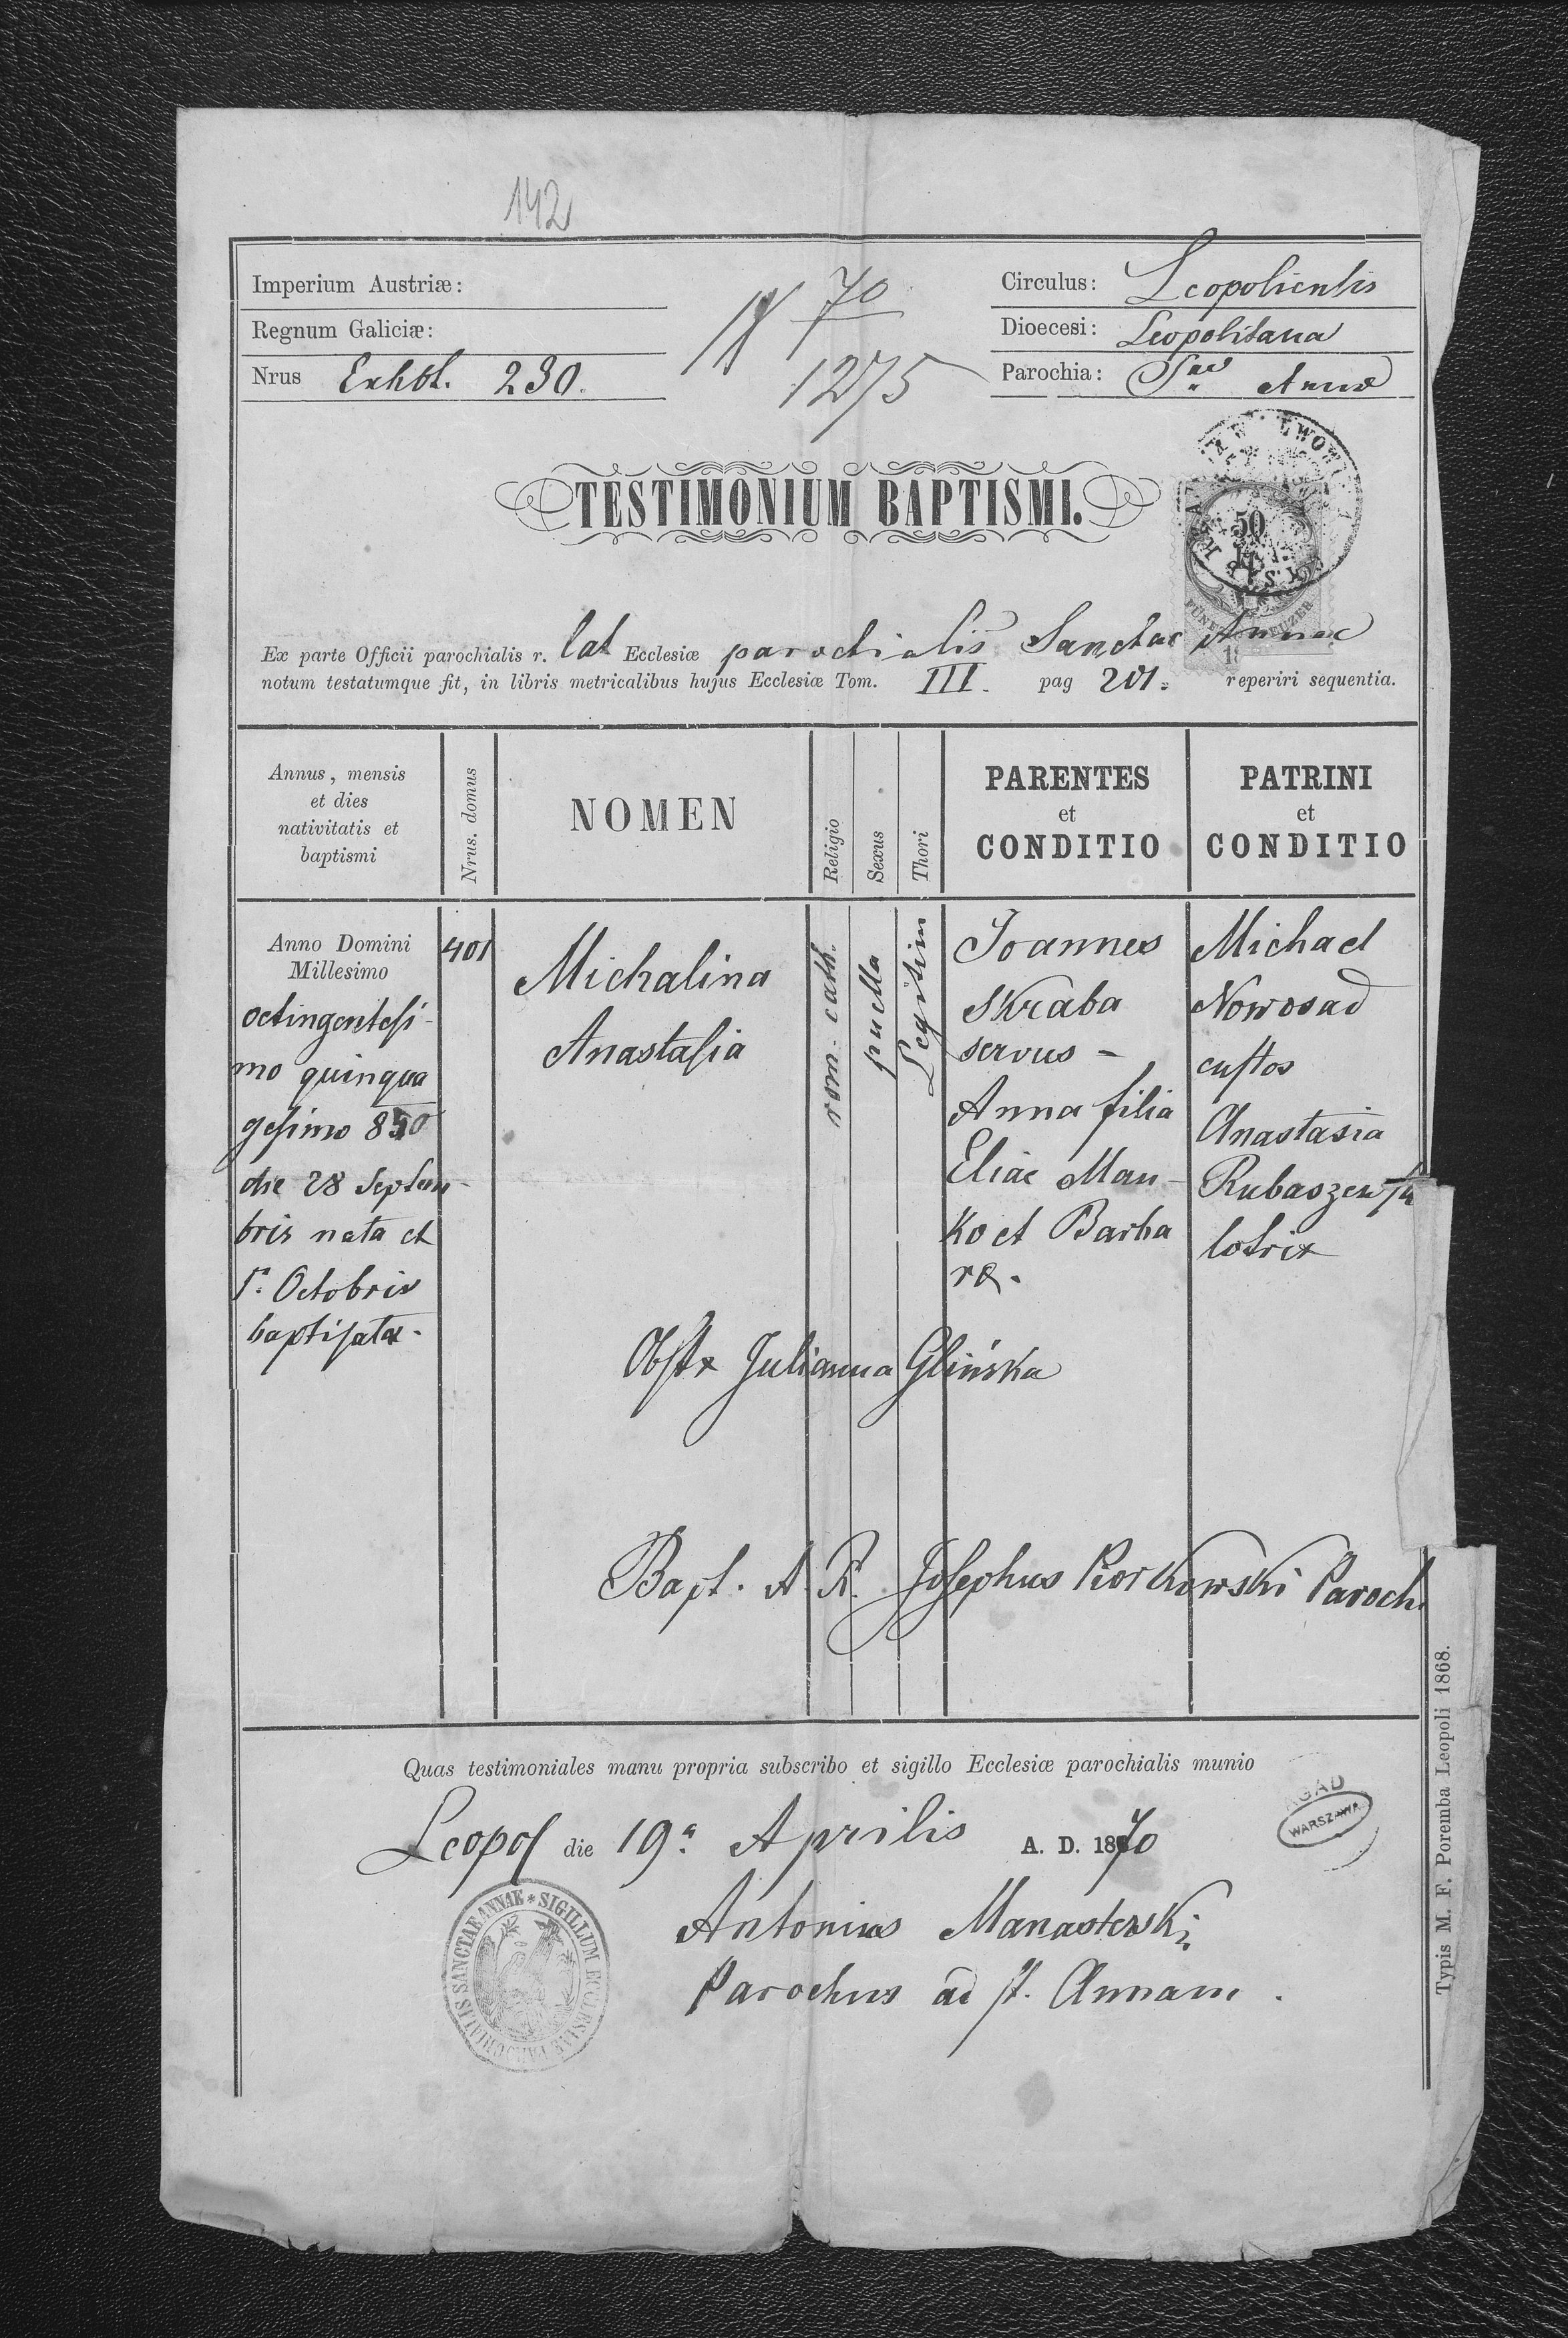 142
Imperium Austriæ:
Regnum Galiciæ:
Nrus Exhbt. 230.
70
1275
Circulus: Leopoliensis
Dioecesi: Leopolitana
Parochia: Sae Annæ
TESTIMONIUM BAPTISMI.
50
Ex parte Officii parochialis r. lat Ecclesiæ parochialis Sanctae Annae
notum testatumque fit, in libris metricalibus hujus Ecclesiæ Tom. III. pag 201. reperiri sequentia.
Annus, mensis
et dies
nativitatis et
baptismi
Nrus. domus
NOMEN
Religio
Sexus
Thori
PARENTES
et
CONDITIO
PATRINI
et
CONDITIO
Anno Domini
Millesimo
octingentesi-
mo quinqua
gesimo 850
die 28 Septem-
bris nata et
1a. Octobris
baptisata.
401
Michalina
Anastasia
rom. cath.
puella
Legitim
Joannes
Skraba
servus -
Anna filia
Eliae Man-
ko et Barba
ræ.
Michael
Nowosad
custos
Anastasia
lotrix
Obstx Julianna Glińska
Bapt. A. R. Josephus Piorkowski Paroch.
Quas testimoniales manu propria subscribo et sigillo Ecclesiæ parochialis munio
Leopol die 19a. Aprilis A. D. 1870
AGAD
WARSZAWA
Antonius Manasterski
Parochus ad st. Annam.
SIGILLUM ECCLESIAE PAROCHIALIS SANCTAE ANNAE
Typis M. F. Poremba Leopoli 1868.